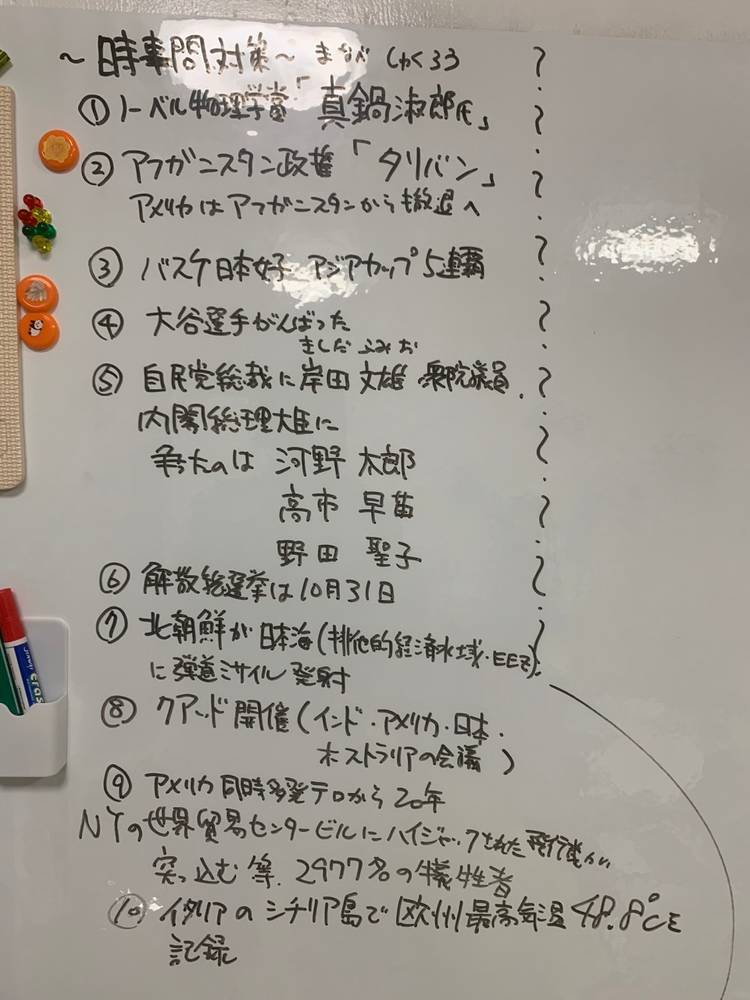 ～時事問対策～ まなべ しゅくろう
① ノーベル物理学賞「真鍋淑郎氏」
② アフガニスタン政権「タリバン」
アメリカはアフガニスタンから撤退へ
③ バスケ日本女子 アジアカップ5連覇
④ 大谷選手がんばった
きしだ ふみお
⑤ 自民党総裁に岸田 文雄 衆院議員.
内閣総理大臣に
争ったのは 河野 太郎
高市 早苗
野田 聖子
⑥ 解散総選挙は10月31日
⑦ 北朝鮮が日本海(排他的経済水域・EEZ)
に弾道ミサイル発射
⑧ クアッド開催(インド・アメリカ・日本・
オーストラリアの会議)
⑨ アメリカ同時多発テロから20年
NYの世界貿易センタービルにハイジャックされた飛行機が
突っ込む等. 2977名の犠牲者
⑩ イタリアのシチリア島で欧州最高気温48.8℃を
記録